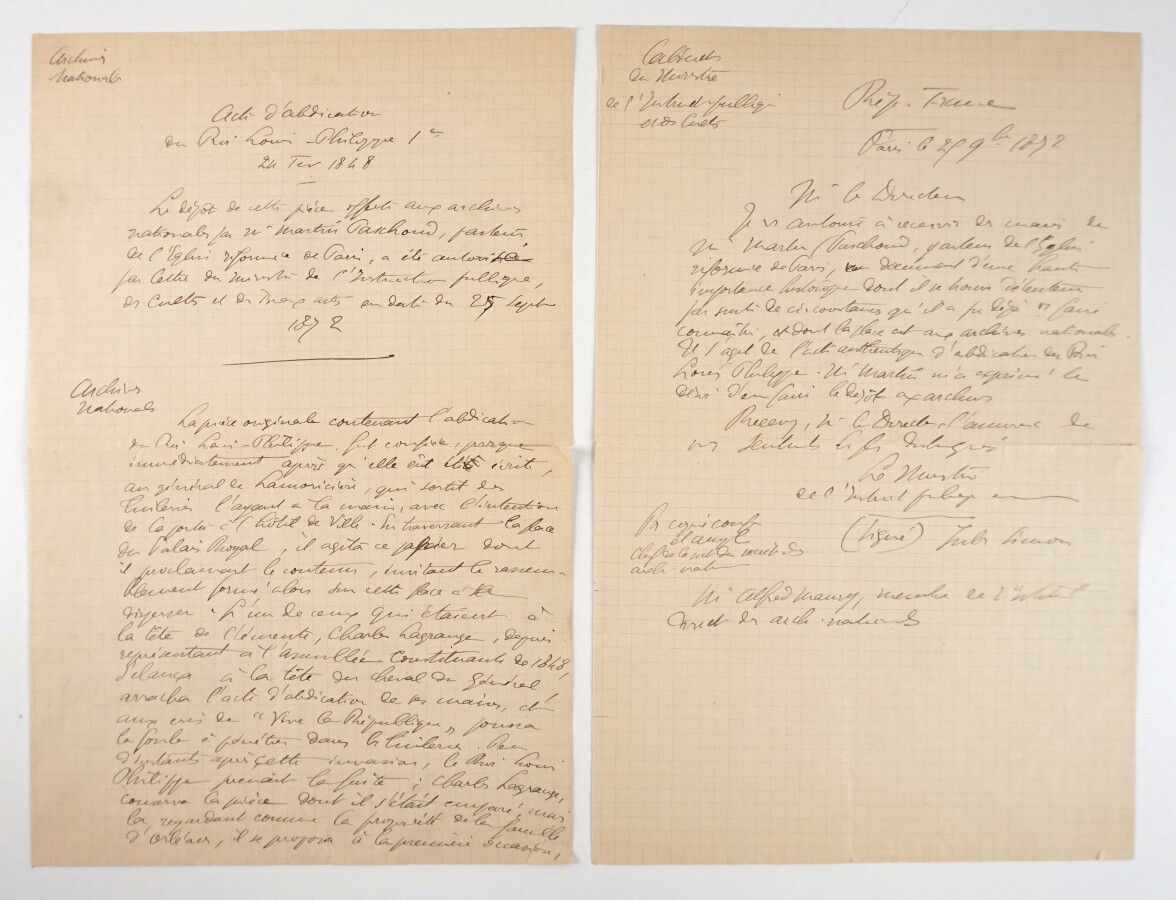 Archives
Nationales
Acte d'abdication
du Roi Louis-Philippe 1er
24 Fev 1848
Le dépôt de cette pièce offerte aux archives
nationales par Mr Martin Paschoud, pasteur
de l'Église réformée de Paris, a été autorisé
par lettre du Ministre de l'Instruction publique,
des Cultes et des Beaux arts en date du 25 Sept
1872
Archives
Nationales
La pièce originale contenant l'abdication
du Roi Louis-Philippe, fut confiée, presque
immédiatement après qu'elle eût été écrite,
au général de Lamoricière, qui sortit des
Tuileries l'ayant à la main, avec l'intention
de la porter à l'hôtel de Ville. En traversant la place
du Palais Royal, il agita ce papier dont
il proclamait le contenu, invitant le rassem-
blement formé alors sur cette place à se
disperser. L'un de ceux qui étaient à
la tête de l'émeute, Charles Lagrange, depuis
représentant à l'Assemblée Constituante de 1848,
s'élança à la tête du cheval du Général,
arracha l'acte d'abdication de ses mains, et
aux cris de "Vive la République" poussa
la foule à pénétrer dans les Tuileries. Peu
d'instants après cette invasion, le Roi Louis
Philippe prenait la fuite ; Charles Lagrange,
conserva la pièce dont il s'était emparé, mais
la regardant comme la propriété de la famille
d'Orléans, il se proposa à la première occasion,
Cabinet
du Ministre
de l'Instruct publiq
et des Cultes
Rép. France
Paris le 25 9bre 1872
Mr le Directeur
Je vs autorise à recevoir des mains de
Mr Martin Paschoud, pasteur de l'Église
réformée de Paris, un document d'une haute
importance historique dont il se trouve détenteur
par suite de circonstances qu'il a pu déjà vs faire
connaître, et dont la place est aux archives nationales.
Il s'agit de l'acte authentique d'abdication du Roi
Louis Philippe. Mr Martin m'a exprimé le
désir d'en faire le dépôt aux archives
Recevez, Mr le Directeur, l'assurance de
mes sentiments les plus distingués
Le Ministre
de l'Instruct publique
(Signé) Jules Simon
Pr copie conf
Chef de la sect du secrétariat
arch. nat
Mr Alfred Maury, membre de l'Institut
Direct des arch. nationales